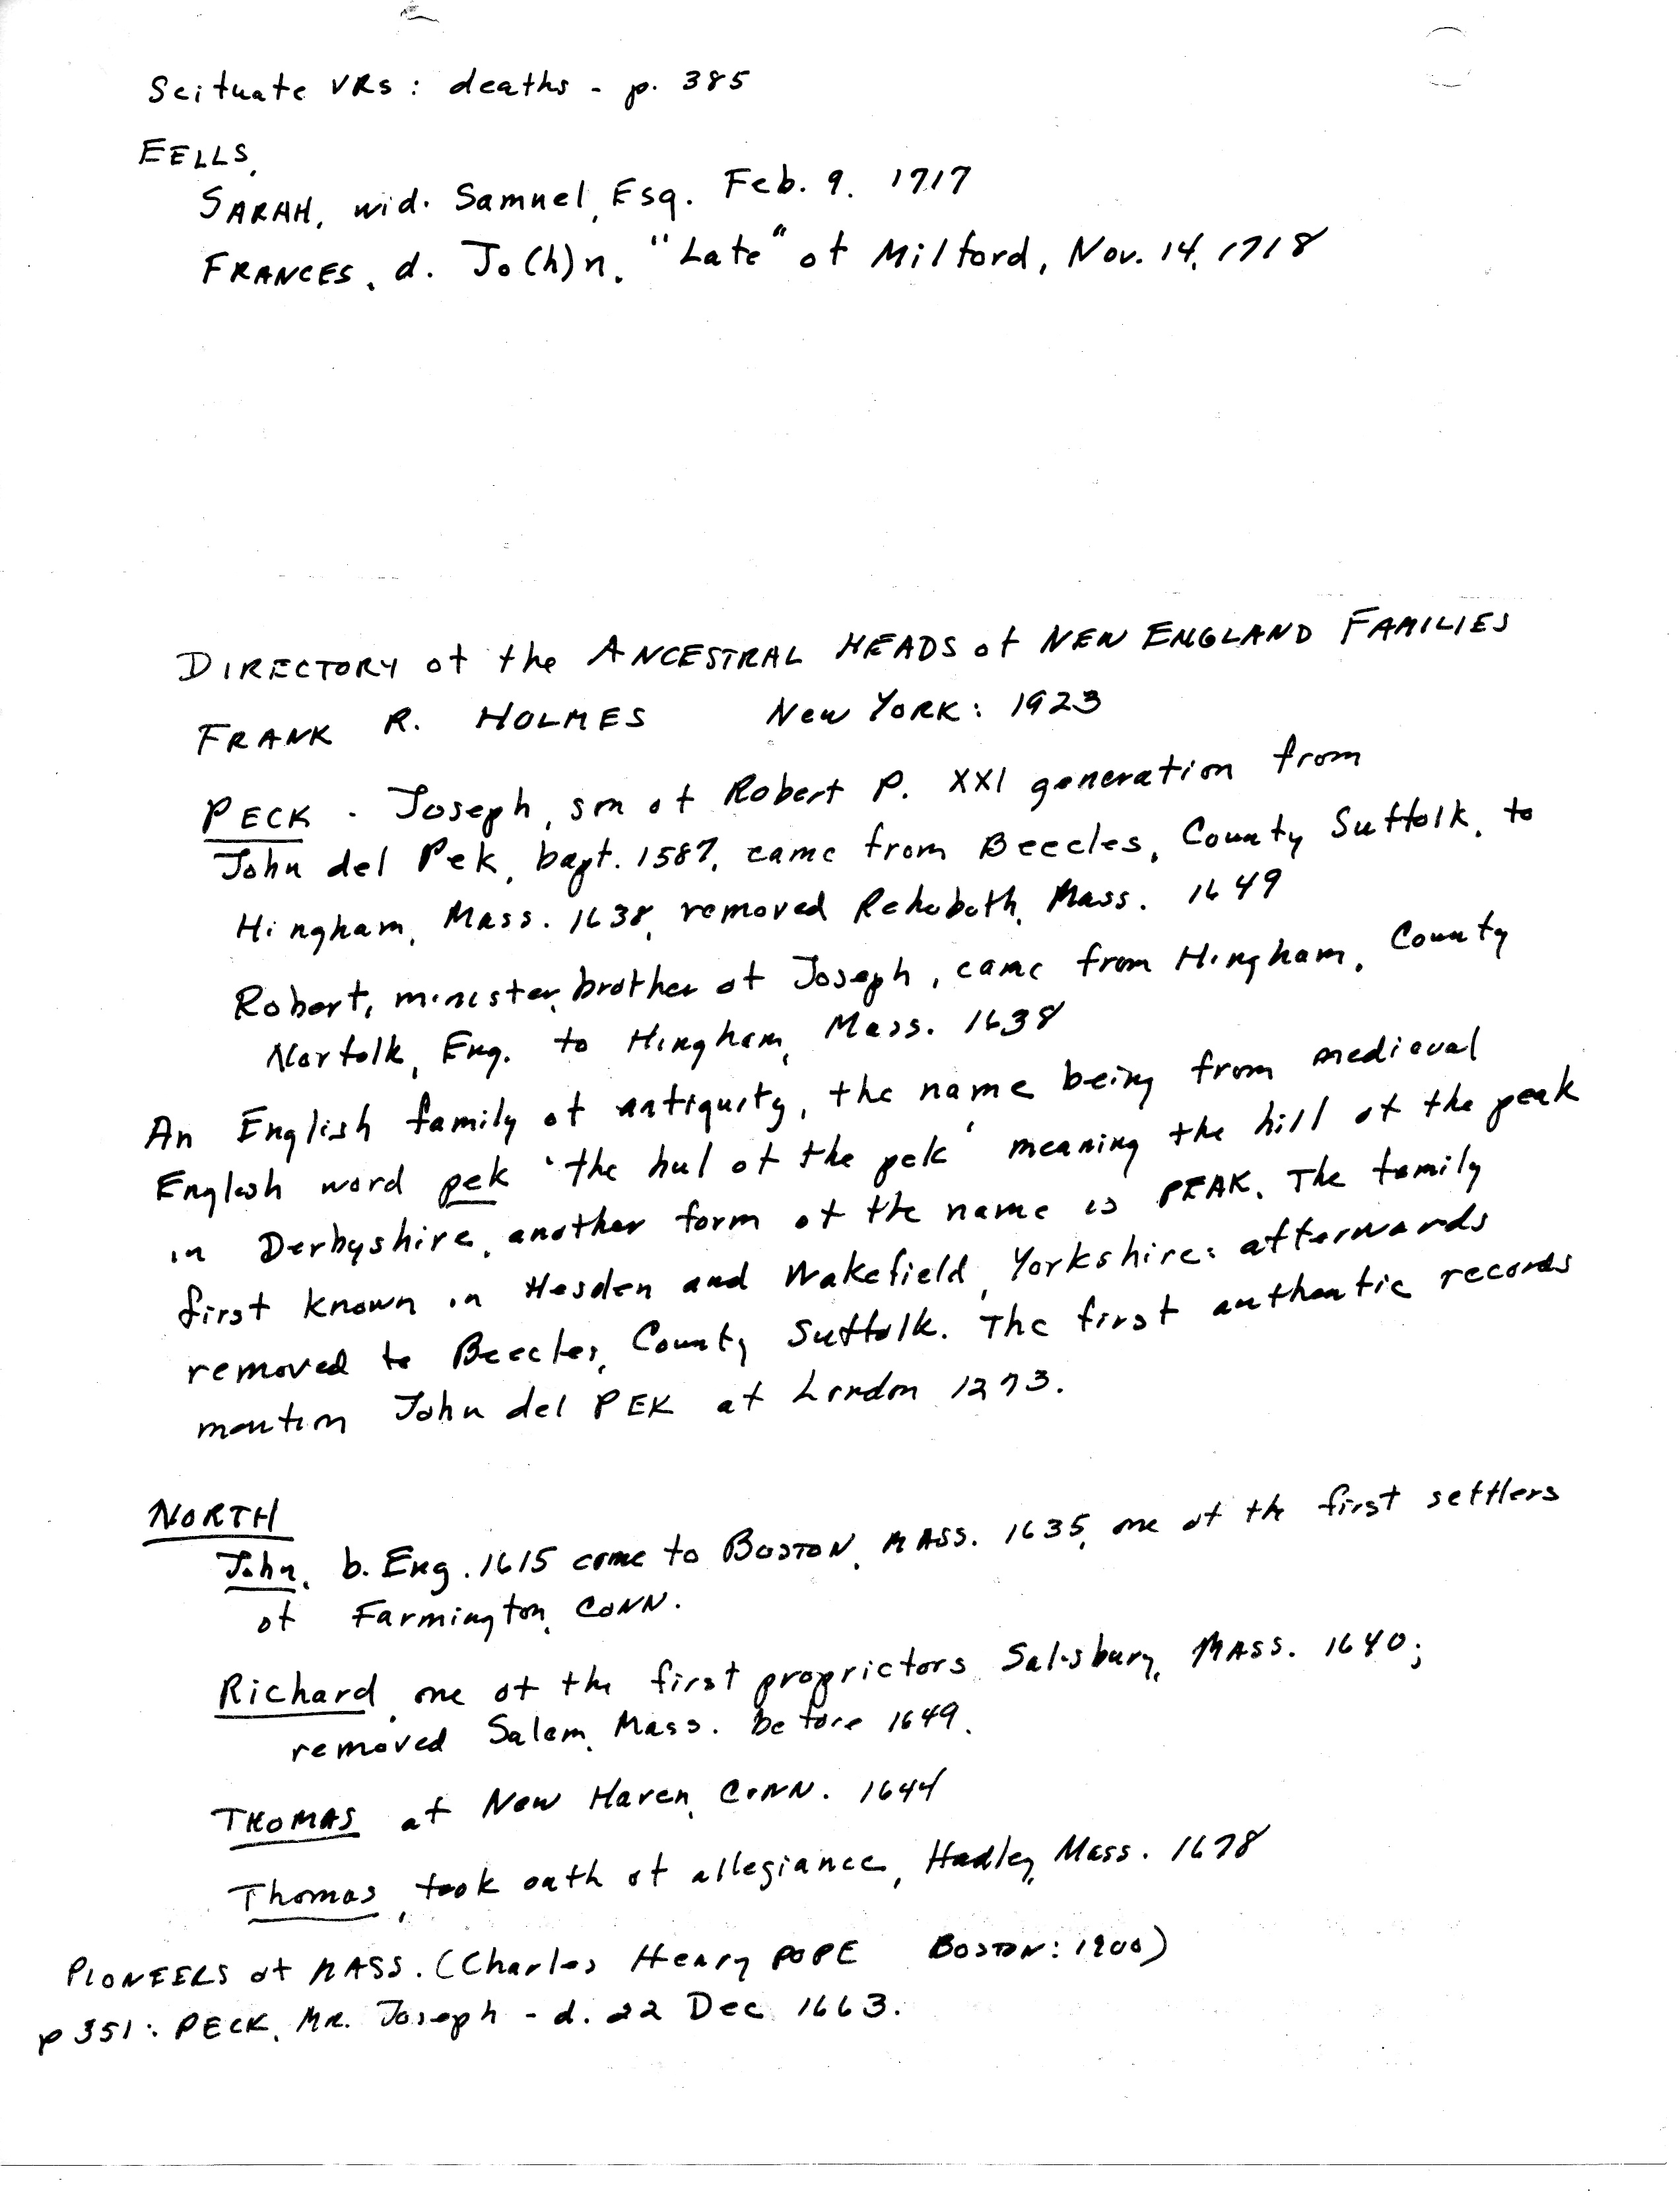 Scituate VRs : deaths - p. 385
EELLS,
SARAH, wid. Samuel, Esq. Feb. 9. 1717
FRANCES, d. Jo(h)n, "Late" of Milford, Nov. 14, 1718
DIRECTORY of the ANCESTRAL HEADS of NEW ENGLAND FAMILIES
FRANK R. HOLMES New YORK: 1923
PECK - Joseph, son of Robert P. XXI generation from
John del Pek, bapt. 1587, came from Beccles, County Suffolk, to
Hingham, Mass. 1638, removed Rehoboth, Mass. 1649
Robert, minister, brother of Joseph, came from Hingham, County
Norfolk, Eng. to Hingham, Mass. 1638
An English family of antiquity, the name being from medieval
English word pek 'the hul of the pek' meaning the hill of the peak
in Derbyshire, another form of the name is PEAK. The family
first known in Hesden and Wakefield, Yorkshire: afterwards
removed to Beccles, County Suffolk. The first authentic records
mention John del PEK at London 1273.
NORTH
John, b. Eng. 1615 come to BOSTON, MASS. 1635, one of the first settlers
of Farmington, CONN.
Richard, one of the first proprietors Salisbury, MASS. 1640;
removed Salem, Mass. before 1649.
THOMAS at New Haven, CONN. 1644
Thomas, took oath of allegiance, Hadley, Mass. 1678
PIONEERS of MASS. (Charles Henry POPE BOSTON: 1900)
p 351: PECK, MR. Joseph - d. 22 Dec 1663.